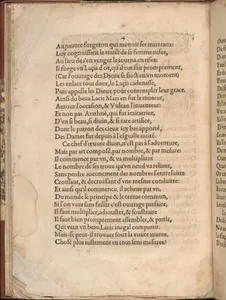 Au pauure forgeron qui monstre ses trauaux:
Luy cognoissant la malice de sa femme ruser,
Au lieu de s'en venger la tourna en riser:
Il forge vn Laçis d'or, qui fut fait promptement,
(Car l'ouurage des Dieux se faict en vn moment)
Les enlace tous deux, le Laçis cadenasse,
Puis appella les Dieux pour contempler leur grace.
Ainsi du beau Lacis Mars en fut le moteur,
Amour l'occasion, & Vulcan l'inuenteur.
Et non pas Arachné, qui fut imitatrice,
D'vn si beau, si diuin, & si rare artifice,
Dont le patron des cieux icy bas apporté,
Des Dames fut depuis à l'esguille
Ce chef-d'œuure diuin, n'est pas à l'aduenture,
Mais par art composé, par nombre, & par mesure
Il commence par vn, & va multipliant
Le nombre de ses trouz qu'vn neud va reliant,
Sans perdre aucunement des nombres l'entresuitte
Croissant, & decroissant d'vne mesme conduitte:
Et ainsi qu'il commence, il acheue par vn,
Du monde le principe & le terme commun,
Si l'on veut sans faillir c'est ouurage parfaire,
Il faut multiplier, adiouster, & soustraire
Il faut bien promptement assembler, & partir,
Qui veut vn beau Laçis inegal compartir.
Mais se peut il trouuer souz la voute azurée,
Chose plus iustement en tous sens mesurée?